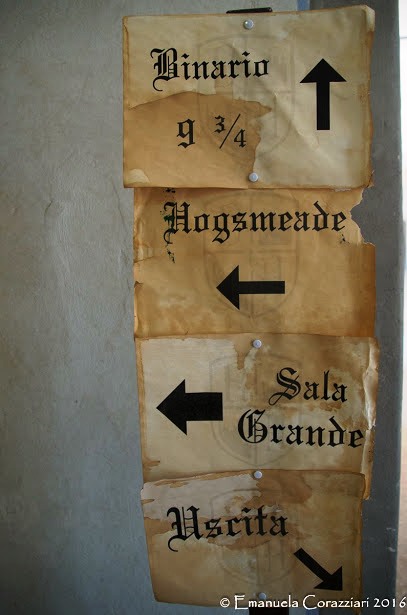 Binario
9 3/4
Hogsmeade
Sala
Grande
Uscita
© Emanuela Corazziari 2016